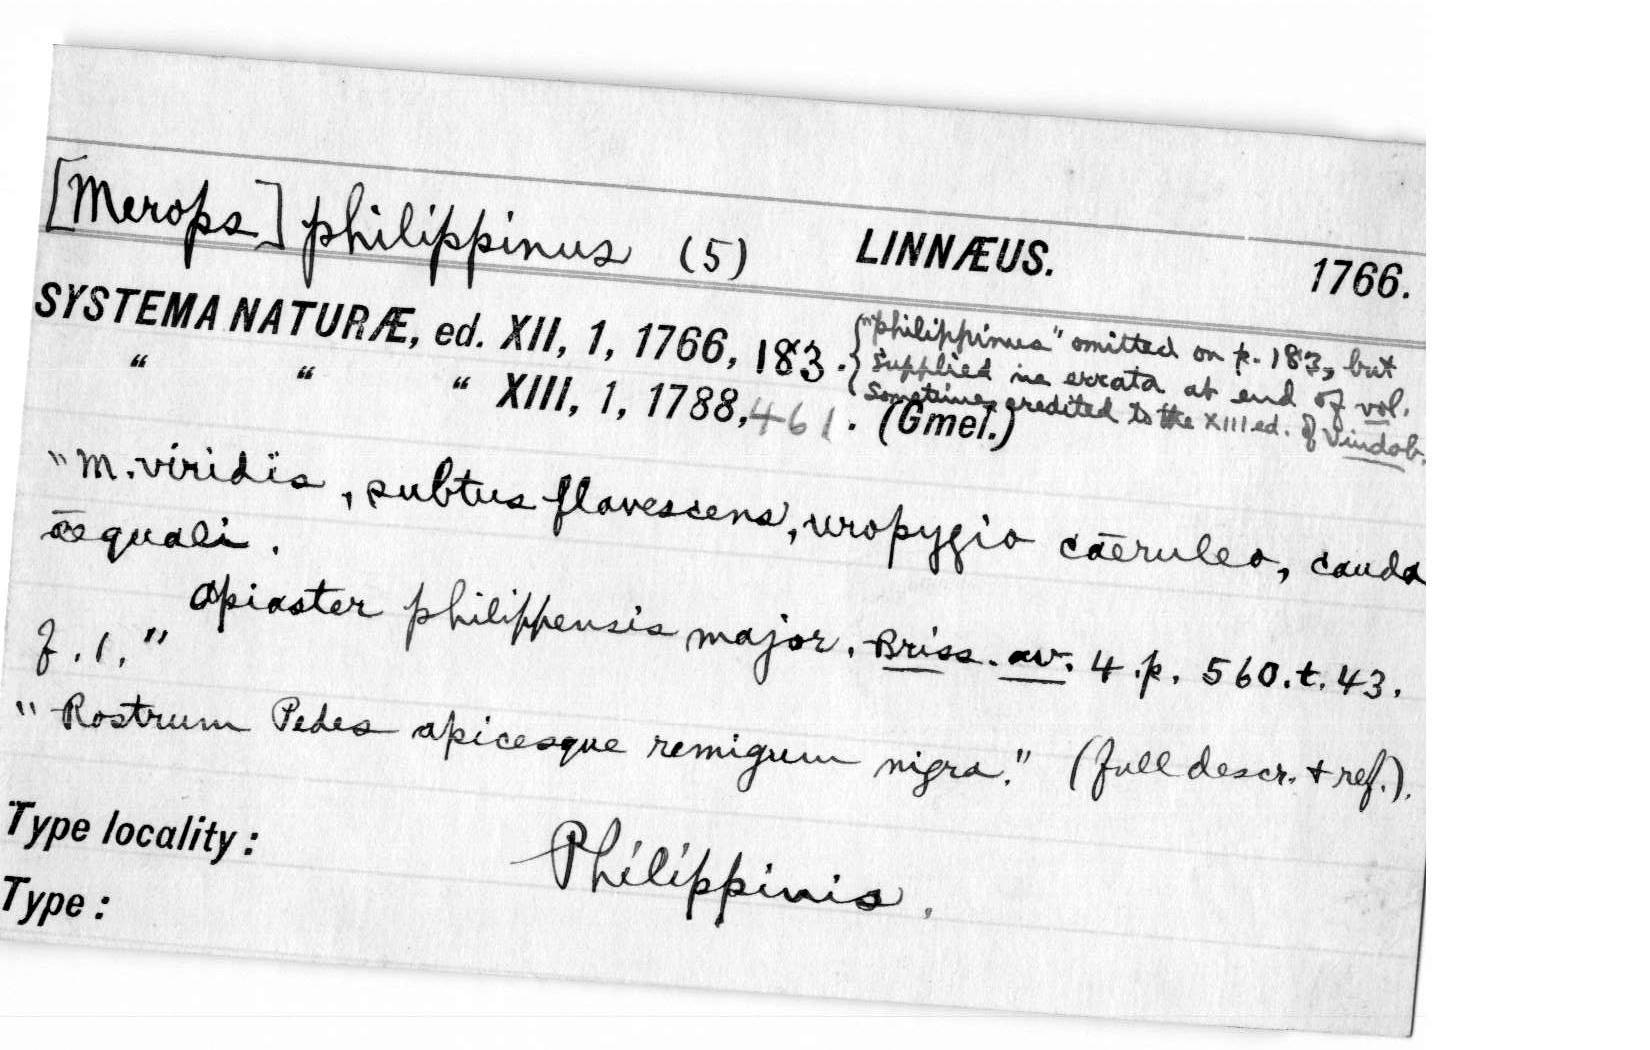 [Merops] philippinus (5) LINNÆUS. 1766.
SYSTEMA NATURÆ, ed. XII, 1, 1766, 183. {"philippinus" omitted on p. 183, but
supplied in errata at end of vol.
sometimes credited to the XIII ed. of Vindob.
" " " XIII, 1, 1788, 461. (Gmel.)
"M. viridis, subtus flavescens, uropygio cæruleo, cauda
æquali.
Apiaster philippensis major. Briss. av. 4. p. 560. t. 43.
f. 1."
"Rostrum Pedes apicesque remigum nigra." (full descr. + ref.).
Type locality: Philippinis.
Type: